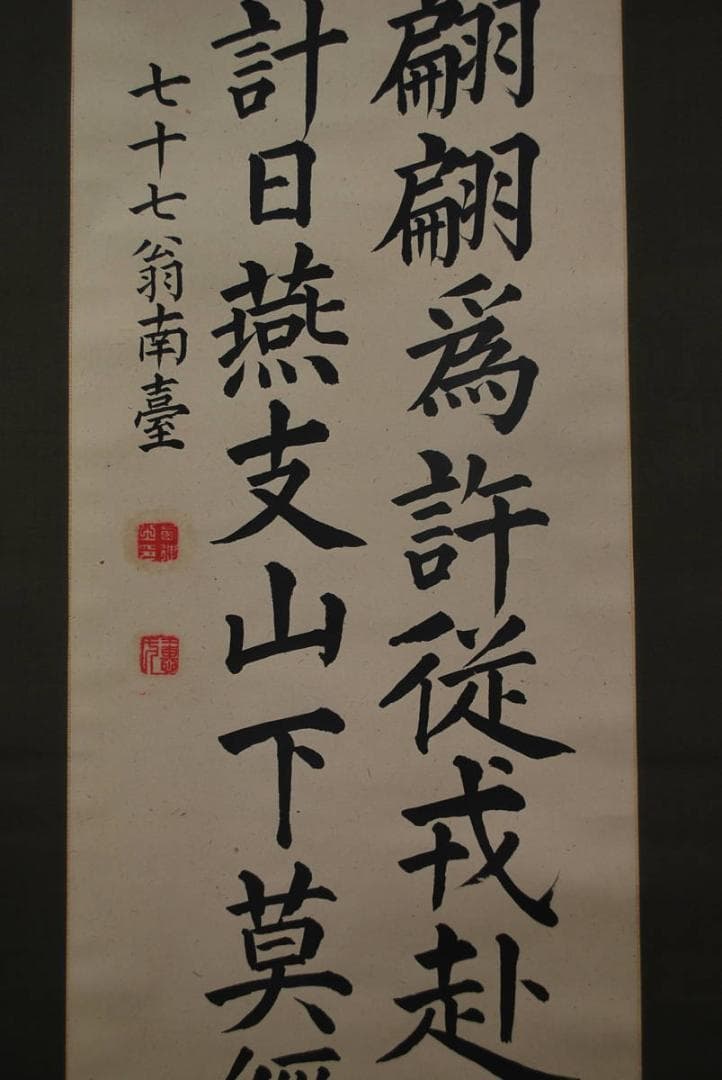 翩翩爲許從戎赴
計日燕支山下莫經
七十七翁南臺